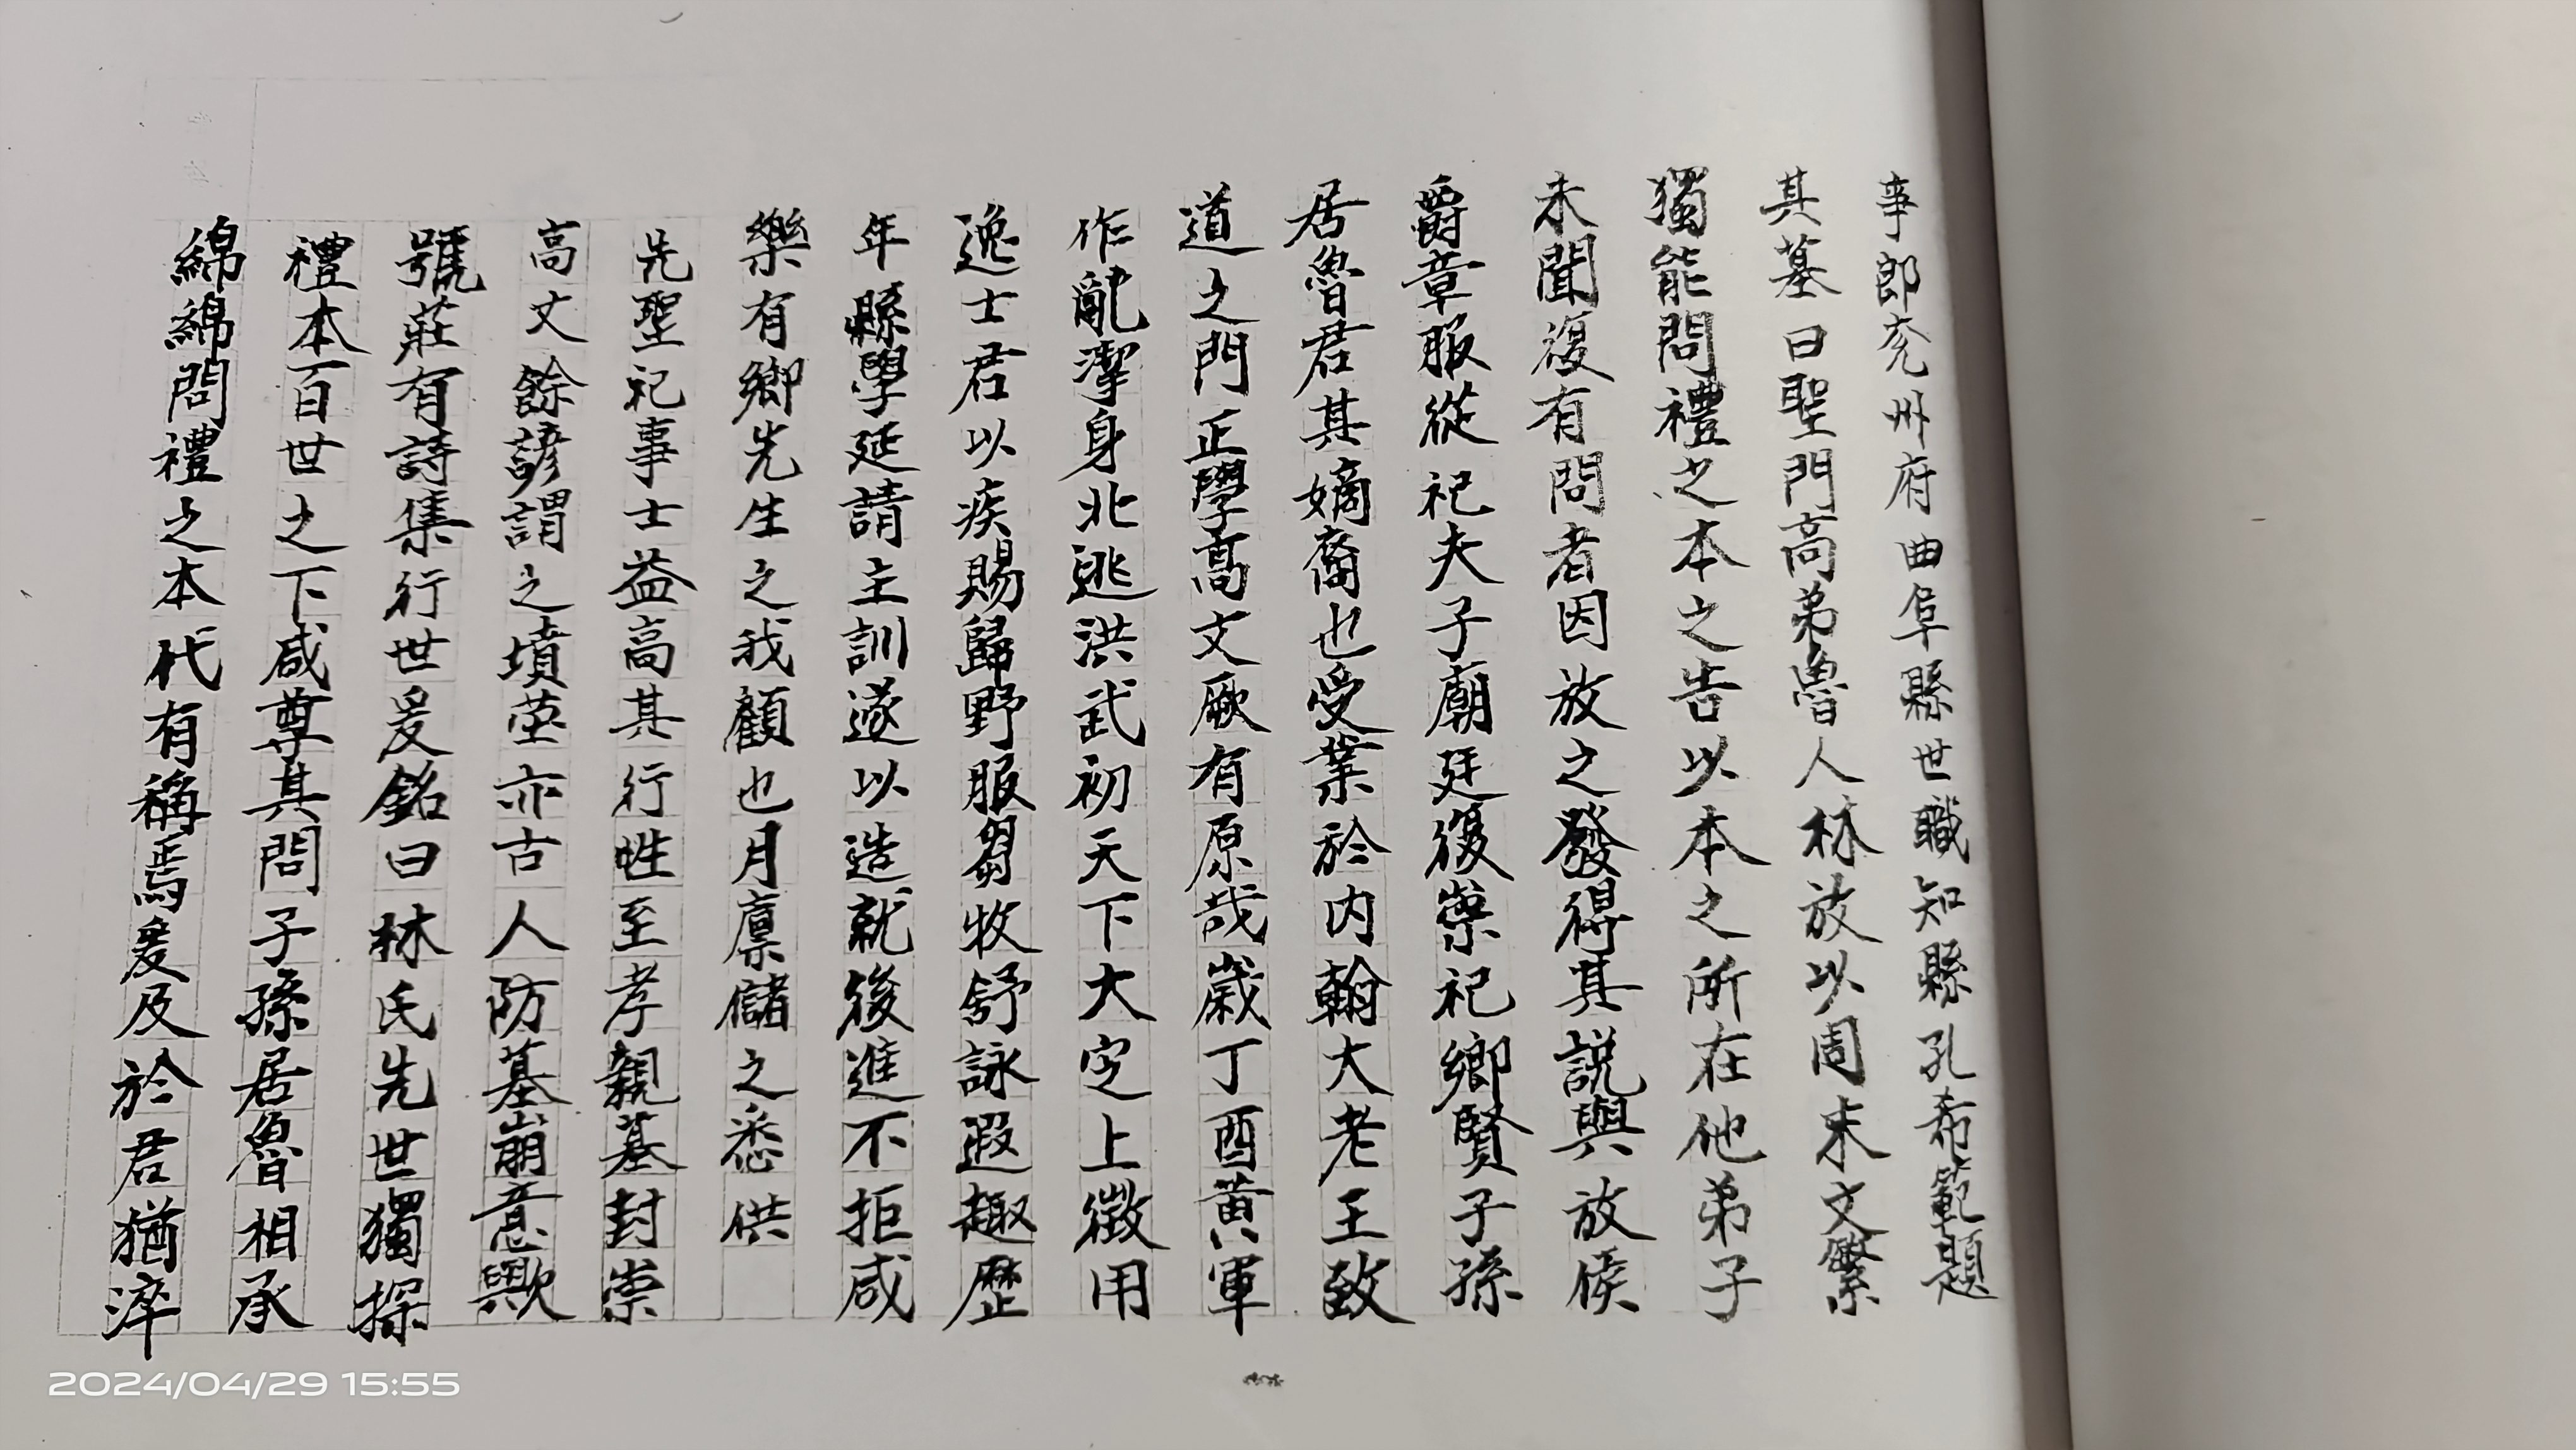 事郎兖州府曲阜縣世職知縣孔希範題
其墓曰聖門高弟魯人林放以周末文繁
獨能問禮之本之告以本之所在他弟子
未聞復有問者因放之發得其説與放侯
爵章服從祀夫子廟廷復崇祀鄉賢子孫
居魯君其嫡裔也受業於内翰大老王致
道之門正學髙文厥有原哉歲丁酉黄軍
作亂潔身北逃洪武初天下大定上徵用
逸士君以疾賜歸野服芻牧舒詠遐趣歷
年縣學延請主訓遂以造就後進不拒咸
樂有鄉先生之我顧也月廪儲之悉供
先聖祀事士益高其行性至孝親墓封崇
高丈餘諺謂之墳塋亦古人防墓崩意歟
號莊有詩集行世爰銘曰林氏先世獨探
禮本百世之下咸尊其問子孫居魯相承
綿綿問禮之本代有稱焉爰及於君猶淬
2024/04/29 15:55